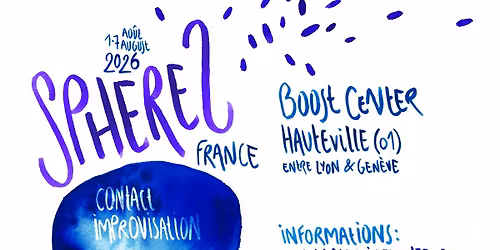 AOÛT
1-7 AUGUST
2026
SPHERES
FRANCE
BOOST CENTER
HAUTEVILLE (01)
ENTRE LYON & GENÈVE
CONTACT
IMPROVISATION
INFORMATIONS: